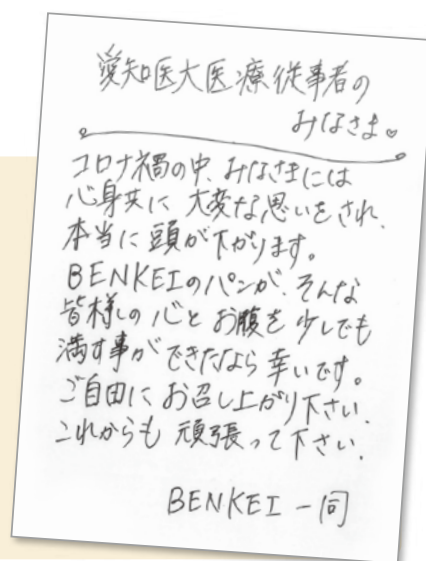 愛知医大医療従事者の
みなさま♡
コロナ禍の中、みなさまには
心身共に大変な思いをされ、
本当に頭が下がります。
BENKEIのパンが、そんな
皆様の心とお腹を少しでも
満す事ができたなら幸いです。
ご自由にお召し上がり下さい。
これからも頑張って下さい。
BENKEI一同